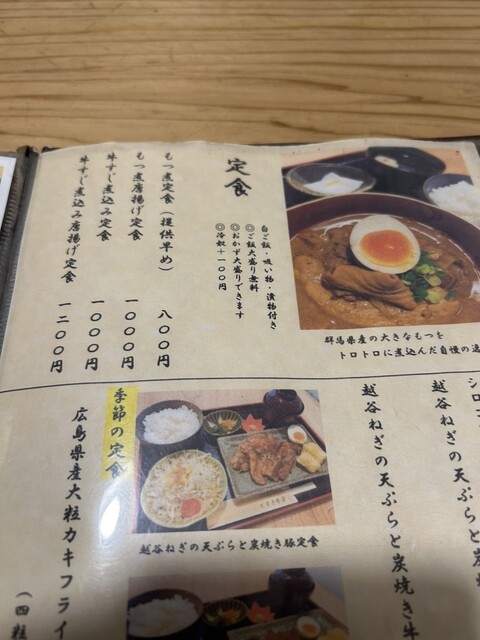 定食
白ご飯・吸い物・漬物付き
◎ご飯大盛り無料
◎おかず大盛りできます
◎冷奴+一〇〇円
もつ煮定食(提供早め) 八〇〇円
もつ煮唐揚げ定食 一〇〇〇円
牛すじ煮込み定食 一〇〇〇円
牛すじ煮込み唐揚げ定食 一二〇〇円
群馬県産の大きなもつを
トロトロに煮込んだ自慢の逸
シロ
越谷ねぎの天ぷらと炭焼
越谷ねぎの天ぷらと炭焼き牛
越谷ねぎの天ぷらと炭焼き豚定食
季節の定食
広島県産大粒カキフライ
(四粒